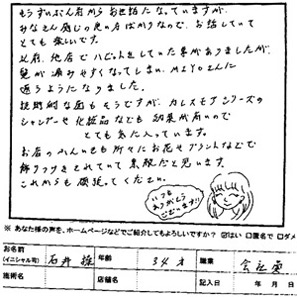 もうずいぶん前からお世話になっていますが、
みなさん感じの良い方ばかりなので、お話していて
とても楽しいです。
以前、他店でハビットをしていた事がありましたが、
髪が傷みやすくなってしまい、MIYOさんに
通うようになりました。
技術的な面もそうですが、カレスモアシリーズの
シャンプーや化粧品なども効果が高いので
とても気に入っています。
お店のふんいきも所々にお花やプラントなどで
飾りつけをされていて素敵だと思います。
これからも頑張ってください。
いつも
ありがとう
ございます!!
※ あなた様の声を、ホームページなどでご紹介してもよろしいですか? ☑はい □匿名で □ダメ
お名前
(イニシャル可)
石井
年齢
34才
職業
会社員
施術名
店舗名
記入日
年 月 日